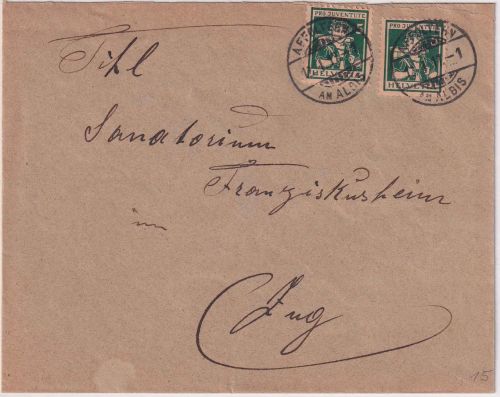 PRO JUVENTUTE 5
HELVETIA
PRO JUVENTUTE
HELVETIA
AM ALBIS
AM ALBIS
1
Titl
Sanatorium
Franziskusheim
im
Zug
15